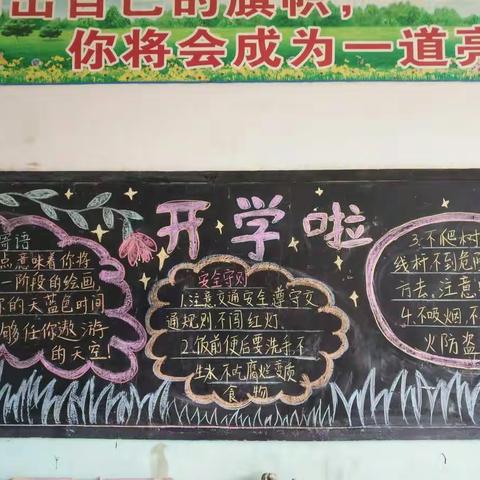 出自己的旗帜，
你将会成为一道亮
开学啦
寄语
点意味着你将
一阶段的绘画
你的天蓝色时间
够任你遨游
的天空
安全守则
1.注意交通安全,遵守交
通规则不闯红灯.
2.饭前便后要洗手,不
生水不吃腐烂变质
食物
3.不爬树
线杆不到危险
方去.注意
4.不吸烟.不
火防盗